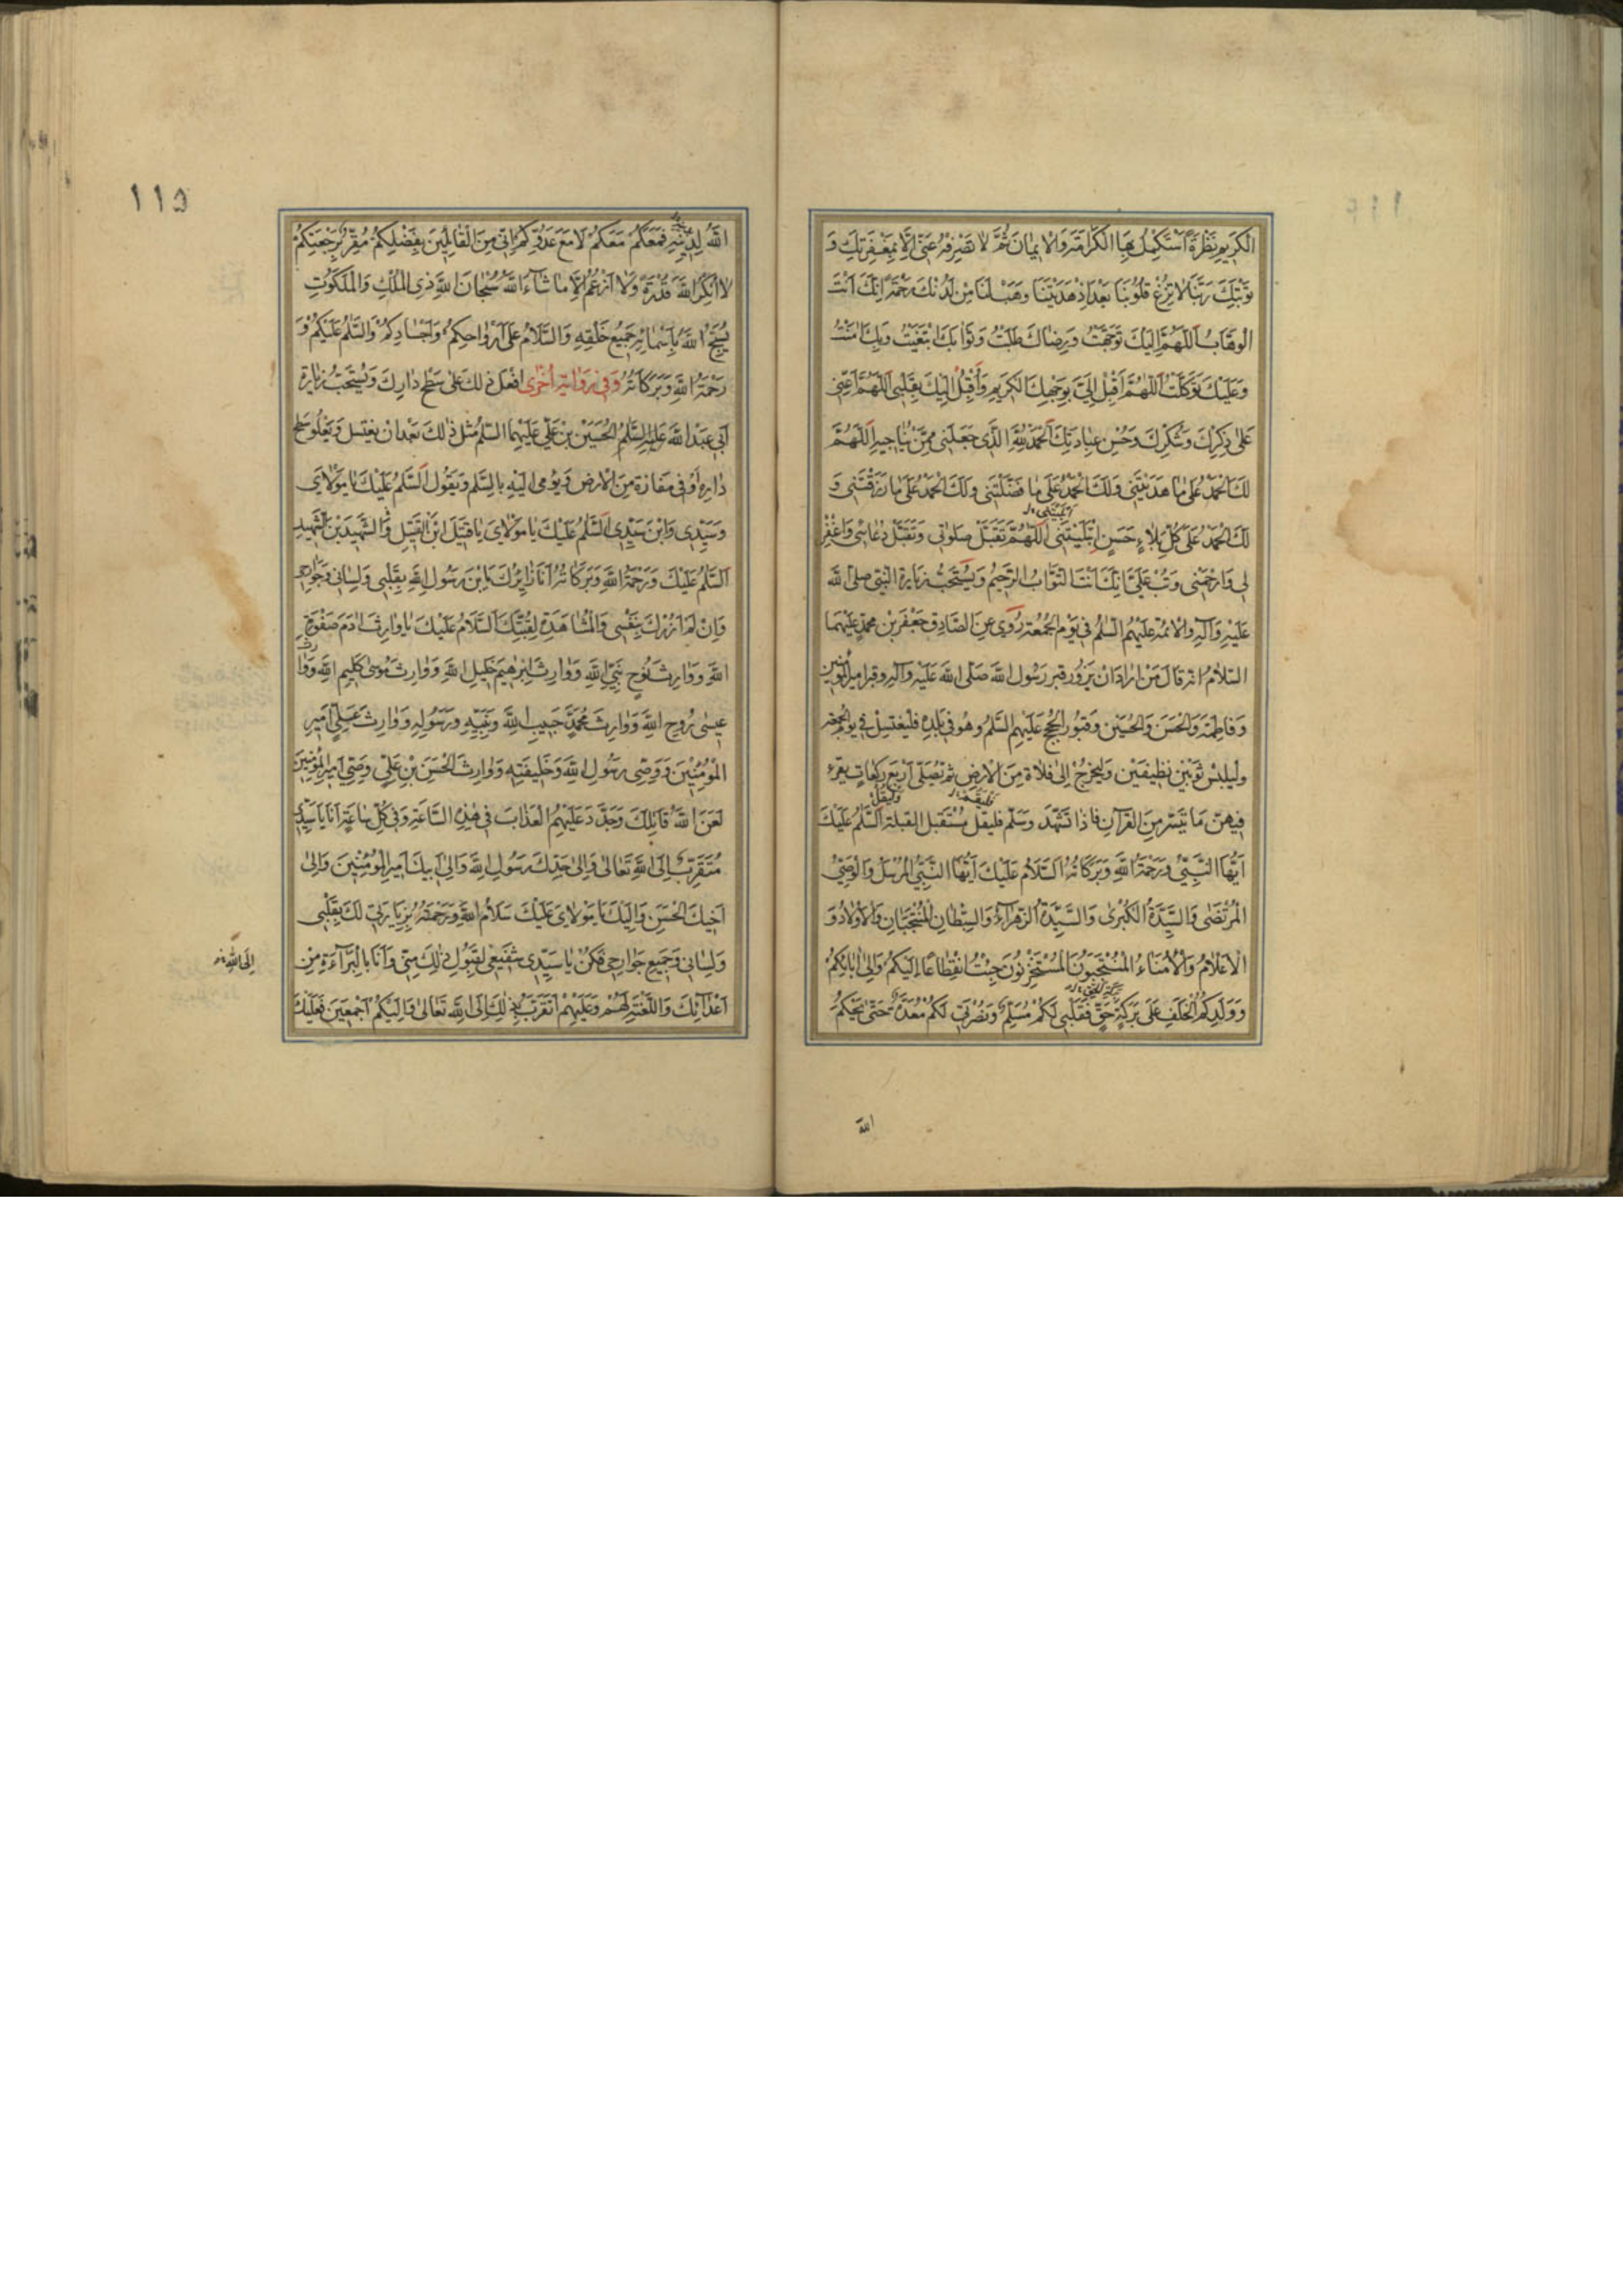 الْكَرِيمِ نَظْرَةً أَسْتَكْمِلُ بِهَا الْكَرَامَةَ وَالْإِيمَانَ ثُمَّ لَا تَصْرِفْهُ عَنِّي إِلَّا بِمَغْفِرَتِكَ وَ
تَوْبَتِكَ رَبَّنَا لَا تُزِغْ قُلُوبَنَا بَعْدَ إِذْ هَدَيْتَنَا وَهَبْ لَنَا مِنْ لَدُنْكَ رَحْمَةً إِنَّكَ أَنْتَ
الْوَهَّابُ اَللّٰهُمَّ إِلَيْكَ تَوَجَّهْتُ وَرِضَاكَ طَلَبْتُ وَثَوَابَكَ ابْتَغَيْتُ وَبِكَ آمَنْتُ
وَعَلَيْكَ تَوَكَّلْتُ اَللّٰهُمَّ أَقْبِلْ إِلَيَّ بِوَجْهِكَ الْكَرِيمِ وَأَقْبِلْ إِلَيْكَ بِقَلْبِي اَللّٰهُمَّ أَعِنِّي
عَلَى ذِكْرِكَ وَشُكْرِكَ وَحُسْنِ عِبَادَتِكَ اَلْحَمْدُ لِلّٰهِ الَّذِي جَعَلَنِي مِمَّنْ يُنَاجِيهِ اَللّٰهُمَّ
لَكَ الْحَمْدُ عَلَى مَا هَدَيْتَنِي وَلَكَ الْحَمْدُ عَلَى مَا فَضَّلْتَنِي وَلَكَ الْحَمْدُ عَلَى مَا رَزَقْتَنِي وَ
لَكَ الْحَمْدُ عَلَى كُلِّ بَلَاءٍ حَسَنٍ ابْتَلَيْتَنِي اَللّٰهُمَّ تَقَبَّلْ صَلَوٰتِي وَتَقَبَّلْ دُعَائِي وَاغْفِرْ
لِي وَارْحَمْنِي وَتُبْ عَلَيَّ إِنَّكَ أَنْتَ التَّوَّابُ الرَّحِيمُ وَيُسْتَحَبُّ زِيَارَة النَّبِيِّ صلى الله
عَلَيْهِ وَآلِهِ وَالْأَئِمَّة عَلَيْهِمُ السَّلَمُ فِي يَوْمِ الْجُمُعَةِ رُوِيَ عَنِ الصَّادِقِ جَعْفَرِ بْنِ مُحَمَّدٍ عَلَيْهِمَا
السَّلَامُ انه قَالَ مَنْ أَرَادَ أَنْ يَزُورَ قبر رَسُولِ اللّٰهِ صَلَّى اللّٰهُ عَلَيْهِ وَآلِهِ وقبر امير المؤمنين
وَفَاطِمَةَ وَالْحَسَنَ وَالْحُسَيْنَ وَقُبُورَ الْحُجَجِ عَلَيْهِمُ السَّلَمُ وَهُوَ فِي بَلَدِهِ فَلْيَغْتَسِلْ فِي يَوْمِ الْجُمُعَةِ
وَلْيَلْبَسْ ثَوْبَيْنِ نَظِيفَيْنِ وَلْيَخْرُجْ إِلَى فَلَاةٍ مِنَ الْأَرْضِ ثُمَّ يُصَلِّي أَرْبَعَ رَكَعَاتٍ يقرء
فِيهِنَّ مَا تَيَسَّرَ مِنَ الْقُرْآنِ فَإِذَا تَشَهَّدَ وَسَلَّمَ فليقل مُسْتَقْبِلَ الْقِبْلَةِ اَلسَّلَمُ عَلَيْكَ
أَيُّهَا النَّبِيُّ وَرَحْمَةُ اللّٰهِ وَبَرَكَاتُهُ اَلسَّلَامُ عَلَيْكَ أَيُّهَا النَّبِيُّ الْمُرْسَلُ وَالْوَصِيُّ
الْمُرْتَضَى وَالسَّيِّدَةُ الْكُبْرَى وَالسَّيِّدَةُ الزَّهْرَاءُ وَالسِّبْطَانِ الْمُنْتَجَبَانِ وَالْأَوْلَادُ وَ
الْأَعْلَامُ وَالْأُمَنَاءُ الْمُنْتَجَبُونَ الْمُسْتَخْزَنُونَ جِئْتُ انْقِطَاعًا إِلَيْكُمْ وَإِلَى آبَائِكُمْ
وَوَلَدِكُمُ الْخَلَفِ عَلَى بَرَكَةِ حَقٍّ فَقَلْبِي لَكُمْ مُسَلِّمٌ وَنُصْرَتِي لَكُمْ مُعَدَّةٌ حَتَّى يَحْكُمَ
الله
١١٥
اللّٰهُ لِدِينِهِ فَمَعَكُمْ مَعَكُمْ لَا مَعَ عَدُوِّكُمْ إِنِّي مِنَ الْقَائِلِينَ بِفَضْلِكُمْ مُقِرٌّ بِرَجْعَتِكُمْ
لَا أُنْكِرُ لِلّٰهِ قُدْرَةً وَلَا أَزْعُمُ إِلَّا مَا شَاءَ اللّٰهُ سُبْحَانَ اللّٰهِ ذِي الْمُلْكِ وَالْمَلَكُوتِ
يُسَبِّحُ اللّٰهَ بِأَسْمَائِهِ جَمِيعُ خَلْقِهِ وَالسَّلَامُ عَلَى أَرْوَاحِكُمْ وَأَجْسَادِكُمْ وَالسَّلَمُ عَلَيْكُمْ وَ
رَحْمَةُ اللّٰهِ وَبَرَكَاتُهُ وَفِي رِوَايَةٍ أُخْرَى افْعَلْ ذٰلِكَ عَلَى سَطْحِ دَارِكَ وَيُسْتَحَبُّ زِيَارَة
أَبِي عَبْدِ اللّٰهِ عَلَيْهِ السَّلَمُ الْحُسَيْنِ بْنِ عَلِيٍّ عَلَيْهِمَا السَّلَمُ مثل ذٰلِكَ بَعْدَ أَنْ يَغْتَسِلَ وَيَعْلُو سطح
دَارِهِ أَوْ فِي مَفَازَةٍ مِنَ الْأَرْضِ وَيُومِي إِلَيْهِ بِالسَّلَمِ وَيَقُولُ اَلسَّلَمُ عَلَيْكَ يَا مَوْلَايَ
وَسَيِّدِي وَابْنَ سَيِّدِي اَلسَّلَمُ عَلَيْكَ يَا مَوْلَايَ يَا قَتِيلَ ابْنَ الْقَتِيلِ وَالشَّهِيدَ بْنَ الشَّهِيدِ
اَلسَّلَمُ عَلَيْكَ وَرَحْمَةُ اللّٰهِ وَبَرَكَاتُهُ أَنَا زَائِرُكَ يَا بْنَ رَسُولِ اللّٰهِ بِقَلْبِي وَلِسَانِي وَجَوَارِحِي
وَإِنْ لَمْ أَزُرْكَ بِنَفْسِي وَالْمُشَاهَدَةِ لِقُبَّتِكَ اَلسَّلَامُ عَلَيْكَ يَا وَارِثَ آدَمَ صَفْوَةِ
اللّٰهِ وَوَارِثَ نُوحٍ نَبِيِّ اللّٰهِ وَوَارِثَ إِبْرٰهِيمَ خَلِيلِ اللّٰهِ وَوَارِثَ مُوسَى كَلِيمِ اللّٰهِ وَوَارِثَ
عِيسَى رُوحِ اللّٰهِ وَوَارِثَ مُحَمَّدٍ حَبِيبِ اللّٰهِ وَنَبِيِّهِ وَرَسُولِهِ وَوَارِثَ عَلِيٍّ أَمِيرِ
الْمُؤْمِنِينَ وَوَصِيِّ رَسُولِ اللّٰهِ وَخَلِيفَتِهِ وَوَارِثَ الْحَسَنِ بْنِ عَلِيٍّ وَصِيِّ أَمِيرِ الْمُؤْمِنِينَ
لَعَنَ اللّٰهُ قَاتِلَكَ وَجَدَّدَ عَلَيْهِمُ الْعَذَابَ فِي هٰذِهِ السَّاعَةِ وَفِي كُلِّ سَاعَةٍ أَنَا يَا سَيِّدِي
مُتَقَرِّبٌ إِلَى اللّٰهِ تَعَالَى وَإِلَى جَدِّكَ رَسُولِ اللّٰهِ وَإِلَى أَبِيكَ أَمِيرِ الْمُؤْمِنِينَ وَإِلَى
أَخِيكَ الْحَسَنِ وَإِلَيْكَ يَا مَوْلَايَ عَلَيْكَ سَلَامُ اللّٰهِ وَرَحْمَتُهُ بِزِيَارَتِي لَكَ بِقَلْبِي
وَلِسَانِي وَجَمِيعِ جَوَارِحِي فَكُنْ يَا سَيِّدِي شَفِيعِي لِقَبُولِ ذٰلِكَ مِنِّي وَأَنَا بِالْبَرَاءَةِ مِنْ
أَعْدَائِكَ وَاللَّعْنَةِ لَهُمْ وَعَلَيْهِمْ أَتَقَرَّبُ بِذٰلِكَ إِلَى اللّٰهِ تَعَالَى وَإِلَيْكُمْ أَجْمَعِينَ فَعَلَيْكَ